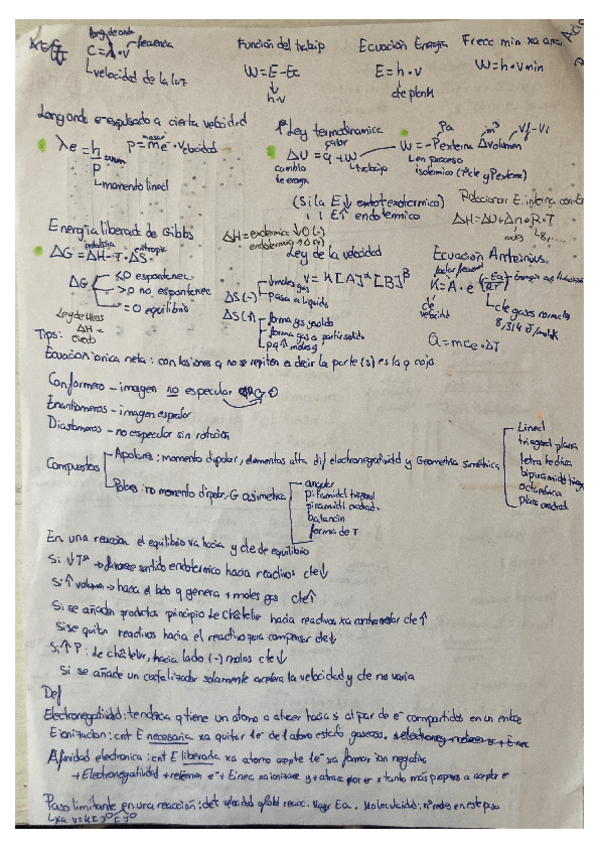 long de onda
C = λ · ν frecuencia
velocidad de la luz
Función del trabajo
W = E - Ec
h·ν
Ecuación Energia
E = h · ν
cte plank
Frecc min xa arrancar
W = h · νmin
Long onda e- expulsado a cierta velocidad
λe = h / P
P = me- · velocidad
momento lineal
1ª Ley termodinamica
calor
ΔU = q + W
trabajo
cambio de energia
Pa m³ Vf - Vi
W = -Pexterna Δvolumen
en proceso isotermico (Tcte y Pexterna)
(Si la E ↓ exotermico)
E↑ endotermico
Relacionar E. interna con
ΔH = ΔU + Δn · R · T
moles
Energia liberada de Gibbs
entalpia entropia
ΔG = ΔH - T · ΔS
ΔG <0 espontaneo
>0 no espontaneo
=0 equilibrio
ΔH =
Ley de Hess
ΔH =
Ley de la velocidad
v = K [A]^α [B]^β
ΔS (-) ↓ moles gas
pasa a liquido
ΔS (+) forma gas y solido
forma gas a partir solido
Ecuación Arrhenius.
K = A · e^(-Ea/RT)
cte velocidad
cte gases normales
8,314 J/molK
Q = m ce · ΔT
Tips:
Ecuacion ionica neta: con los iones q no se repiten es decir la parte (s) es la q coja
Conformero - imagen no especular
Enantiomeros - imagen especular
Diastomeros - no especular sin rotación
Compuestos
Apolares: momento dipolar, elementos alta dif electronegatividad y Geometria simétrica
Lineal
trigonal plana
tetrahedrica
bipiramide trigo
octaédrica
plano cuadrad
Polares: no momento dipolar, G asimetrica
angular
piramidal trigonal
piramidal cuadrad.
balancin
forma de T
En una reaccion el equilibrio va hacia y cte de equilibrio
Si ↓Tª → favorece sentido endotermico hacia reactivos cte↓
Si ↑ volumen → hacia el lado q genera + moles gas cte↑
Si se añaden productos principio de Châtelier hacia reactivos xa contrarrestar cte↑
Si se quitan reactivos hacia el reactivo para compensar cte↓
Si ↑ P: Le châtelier, hacia lado (-) moles cte↓
Si se añade un catalizador solamente acelera la velocidad y cte no varia
Def
Electronegatividad: tendencia q tiene un atomo a atraer hacia si al par de e- compartidos en un enlace
E ionizacion: cnt E necesaria xa quitar 1e- del atomo estado gaseoso.
Afinidad electronica: cnt E liberada xa atomo acepte 1e- xa formar ion negativo
+ Electronegatividad + retienen e- + E nec xa ionizar y + atrae por e- x tanto más propenso a aceptar e-
Paso limitante en una reacción: det velocidad global reacc. Mayor Ea. Molecularidad: nº moles en este paso